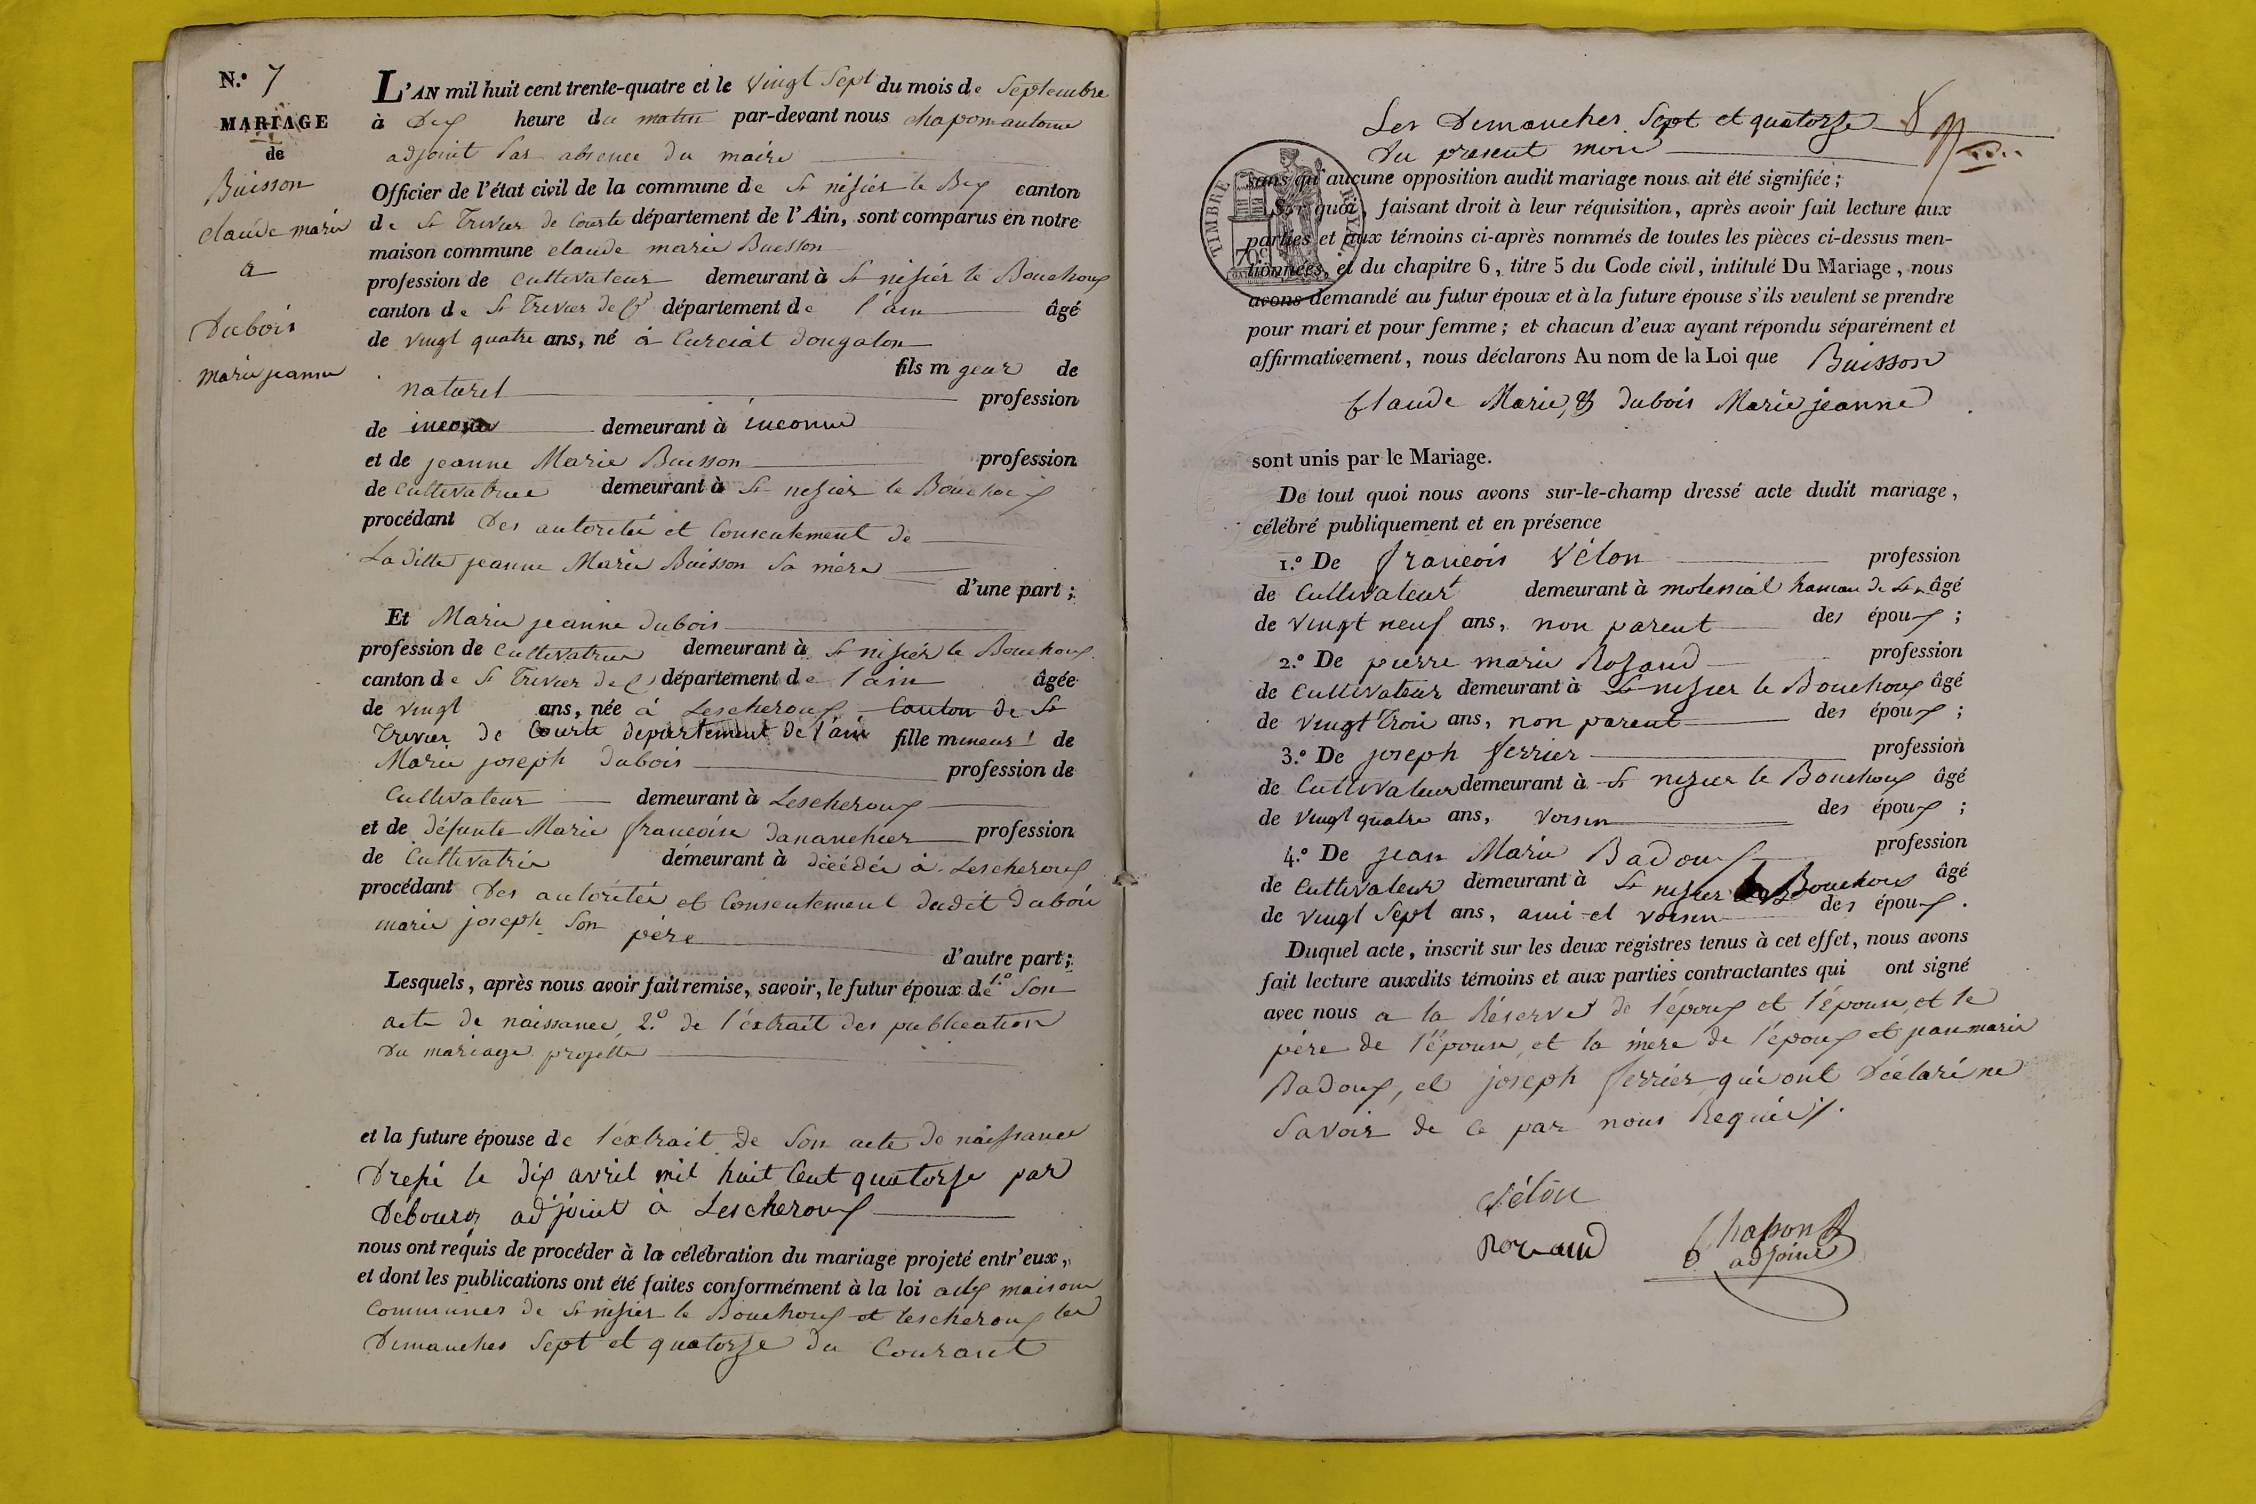 N.º 7
MARIAGE
de
Buisson
claude marie
a
Dubois
marie jeanne
L'AN mil huit cent trente-quatre et le vingt Sept du mois de Septembre
à Dix heure du matin par-devant nous chapon antoine
adjoint par absence du maire
Officier de l'état civil de la commune de St nisier le Bx canton
de St Trivier de Courte département de l'Ain, sont comparus en notre
maison commune claude marie Buisson
profession de cultivateur demeurant à St nisier le Bouchoux
canton de St Trivier de Cte département de l'ain âgé
de vingt quatre ans, né à Curciat dongalon
fils m geur de
naturel profession
de inconu demeurant à inconnu
et de jeanne Marie Buisson profession
de Cultivatrice demeurant à St nisier le Bouchoux
procédant Des autorité et Consentement de
La ditte jeanne Marie Buisson Sa mère
d'une part ;
Et Marie jeanne dubois
profession de Cultivatrice demeurant à St nisier le Bouchoux
canton de St Trivier de C département de l'ain âgée
de vingt ans, née à Lescheroux Canton de St
Trivier de Courte departement de l'ain fille mineur de
Marie joseph dubois profession de
Cultivateur demeurant à Lescheroux
et de défunte Marie francoise dananchier profession
de Cultivatrice demeurant à décédée à Lescheroux
procédant Des autorités et Consentement dudit dubois
marie joseph Son père
d'autre part ;
Lesquels, après nous avoir fait remise, savoir, le futur époux de 1.º Son
acte de naissance, 2.º de l'extrait des publication
Du mariage projetté
et la future épouse de l'extrait de Son acte de naissance
Dressé le dix avril mil huit Cent quatorze par
Debourg adjoint à Lescheroux
nous ont requis de procéder à la célébration du mariage projeté entr'eux,
et dont les publications ont été faites conformément à la loi aux maison
Communes de St nisier le Bouchoux et lescheroux les
Dimanches Sept et quatorze du Courant
Les Dimanches Sept et quatorze
du present mois
TIMBRE ROYAL
sans qu'aucune opposition audit mariage nous ait été signifiée ;
Sur quoi, faisant droit à leur réquisition, après avoir fait lecture aux
parties et aux témoins ci-après nommés de toutes les pièces ci-dessus men-
tionnées, et du chapitre 6, titre 5 du Code civil, intitulé Du Mariage, nous
avons demandé au futur époux et à la future épouse s'ils veulent se prendre
pour mari et pour femme ; et chacun d'eux ayant répondu séparément et
affirmativement, nous déclarons Au nom de la Loi que Buisson
Claude Marie, & dubois Marie jeanne
sont unis par le Mariage.
De tout quoi nous avons sur-le-champ dressé acte dudit mariage,
célébré publiquement et en présence
1.º De francois Vélon profession
de Cultivateur demeurant à molessiat hameau de St n âgé
de vingt neuf ans, non parent des époux ;
2.º De pierre marie Rozand profession
de Cultivateur demeurant à St nisier le Bouchoux âgé
de vingt trois ans, non parent des époux ;
3.º De joseph ferrier profession
de Cultivateur demeurant à St nisier le Bouchoux âgé
de vingt quatre ans, voisin des époux ;
4.º De jean Marie Badoux profession
de Cultivateur demeurant à St nisier le Bouchoux âgé
de vingt Sept ans, ami et voisin des époux.
Duquel acte, inscrit sur les deux registres tenus à cet effet, nous avons
fait lecture auxdits témoins et aux parties contractantes qui ont signé
avec nous a la Réserve de l'époux et l'épouse, et le
père de l'épouse, et la mère de l'époux et jean marie
Badoux, et joseph ferrier qui ont Déclaré ne
Savoir de ce par nous Requis.
Vélon
Rozand
Chapon
adjoint